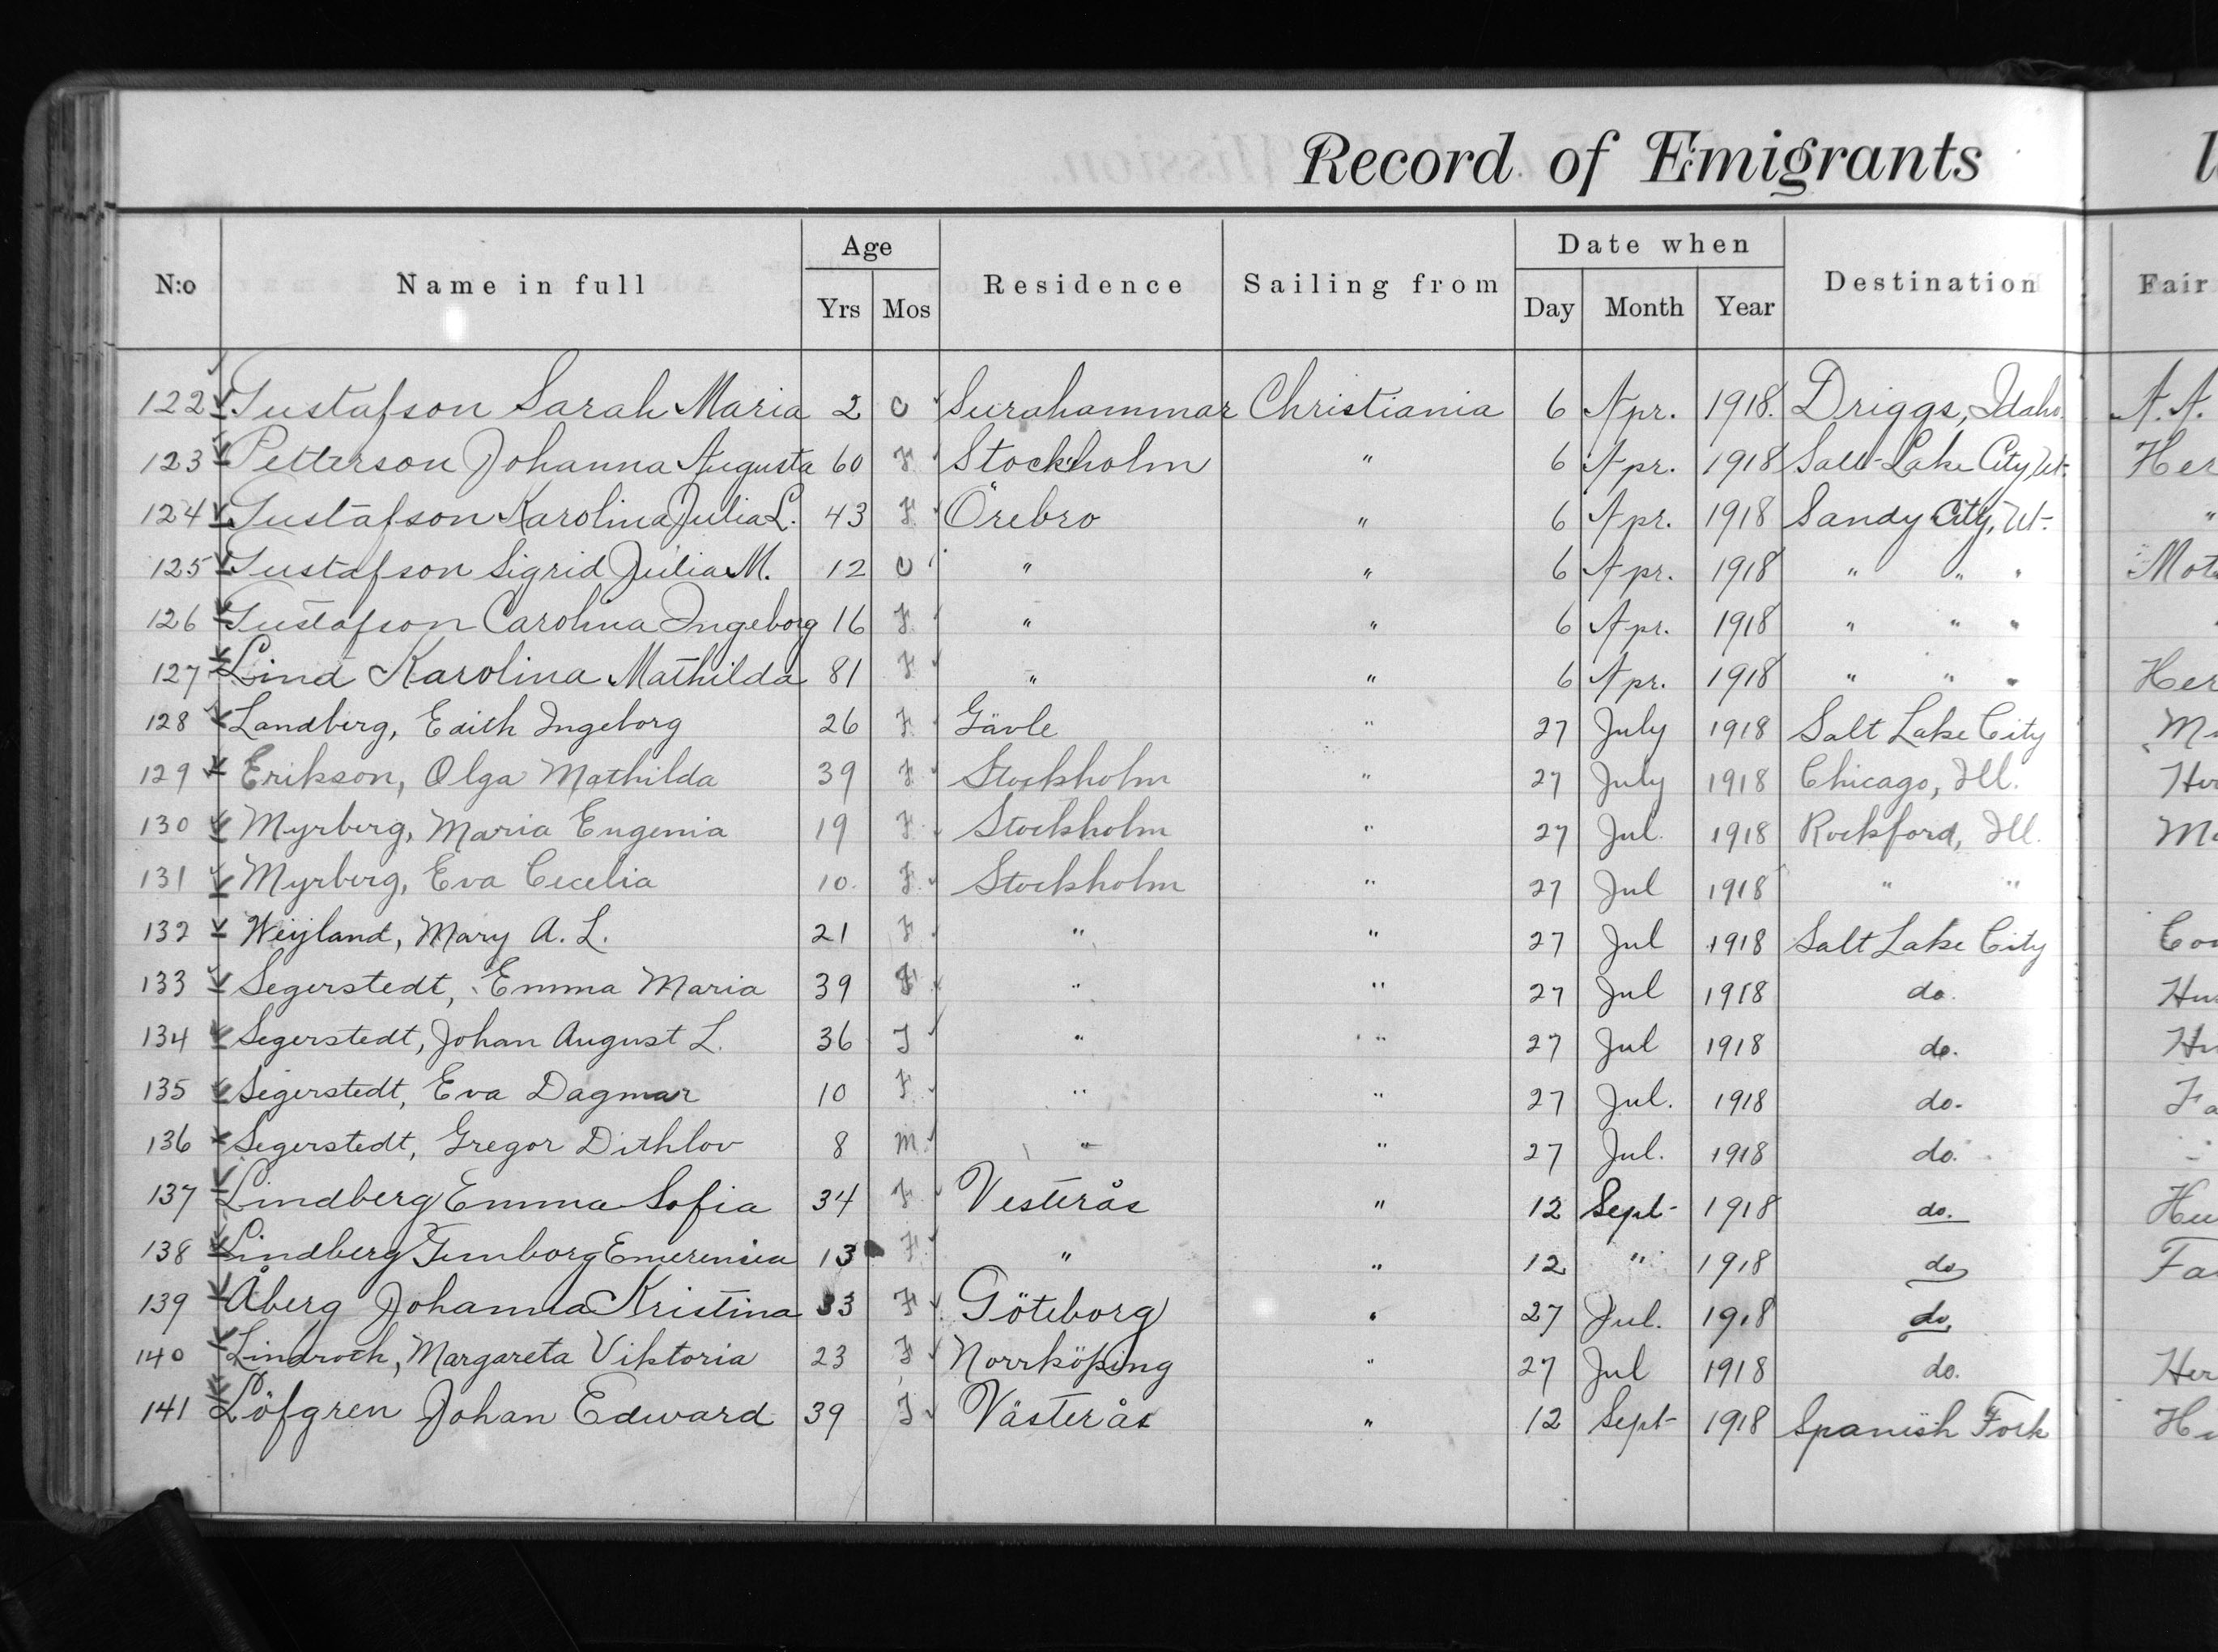 Record of Emigrants
Age Date when
N:o Name in full Residence Sailing from Destination Fair
Yrs Mos Day Month Year
122 Gustafson Sarah Maria 2 C Surahammar Christiania 6 Apr. 1918. Driggs, Idaho. A. A.
123 Petterson Johanna Augusta 60 F Stockholm " 6 Apr. 1918 Salt Lake City, Ut. Her
124 Gustafson Karolina Julia L. 43 F Örebro " 6 Apr. 1918 Sandy City, Ut. "
125 Gustafson Sigrid Julia M. 12 C " " 6 Apr. 1918 " " " Mot
126 Gustafson Carolina Ingeborg 16 F. " " 6 Apr. 1918 " " "
127 Lind Karolina Mathilda 81 F " " 6 Apr. 1918 " " " Her
128 Landberg, Edith Ingeborg 26 F Gävle " 27 July 1918 Salt Lake City
129 Erikson, Olga Mathilda 39 F Stockholm " 27 July 1918 Chicago, Ill.
130 Myrberg, Maria Eugenia 19 F. Stockholm " 27 Jul. 1918 Rockford, Ill.
131 Myrberg, Eva Cecelia 10. F. Stockholm " 27 Jul 1918 " "
132 Weijland, Mary A. L. 21 F " " 27 Jul 1918 Salt Lake City
133 Segerstedt, Emma Maria 39 F " " 27 Jul 1918 do.
134 Segerstedt, Johan August L. 36 " " 27 Jul 1918 do.
135 Segerstedt, Eva Dagmar 10 F " " 27 Jul. 1918 do.
136 Segerstedt, Gregor Dithlov 8 M. " " 27 Jul. 1918 do.
137 Lindberg Emma Sofia 34 F Vesterås " 12 Sept 1918 do.
138 Lindberg Gunborg Emerensia 13 F. " " 12 " 1918 do
139 Åberg Johanna Kristina 33 F Göteborg " 27 Jul. 1918 do
140 Lindroth, Margareta Viktoria 23 F Norrköping " 27 Jul 1918 do. Her
141 Löfgren Johan Edward 39 Västerås " 12 Sept 1918 Spanish Fork